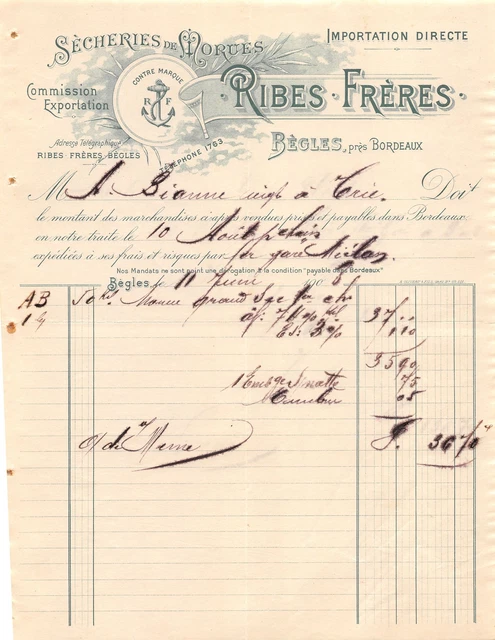 SÈCHERIES DE MORUES
IMPORTATION DIRECTE
Commission
Exportation
CONTRE MARQUE
R F
RIBES FRÈRES
Adresse Télégraphique
RIBES FRÈRES BÈGLES
TÉLÉPHONE 1763
BÈGLES, près BORDEAUX
M A. Bianne à Trie. Doit
le montant des marchandises ci-après vendues prises et payables dans Bordeaux
en notre traite le 10 Août prochain
expédiées à ses frais et risques par fer gare
Nos Mandats ne sont point une dérogation à la condition "payable dans Bordeaux"
Bègles le 11 Juin 190
AB 50 Morue Grand
1 à 74 % 37 "
3 % 1.10
35 90
1 75
05
de Mme F. 36 70